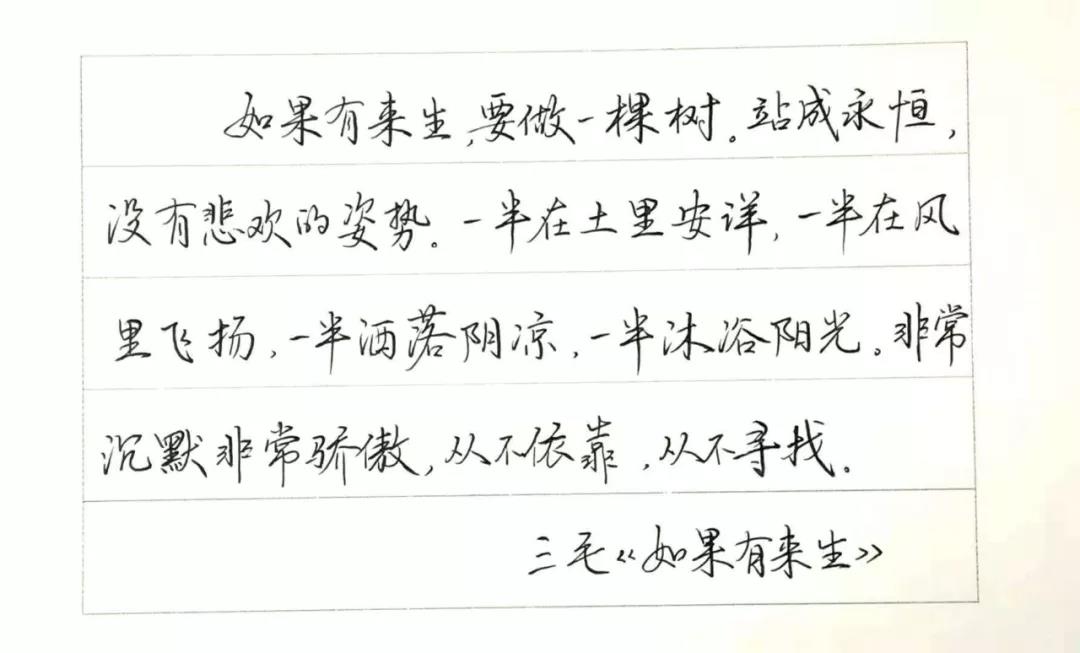 如果有来生,要做一棵树。站成永恒,
没有悲欢的姿势。一半在土里安详,一半在风
里飞扬,一半洒落阴凉,一半沐浴阳光。非常
沉默非常骄傲,从不依靠,从不寻找。
三毛《如果有来生》